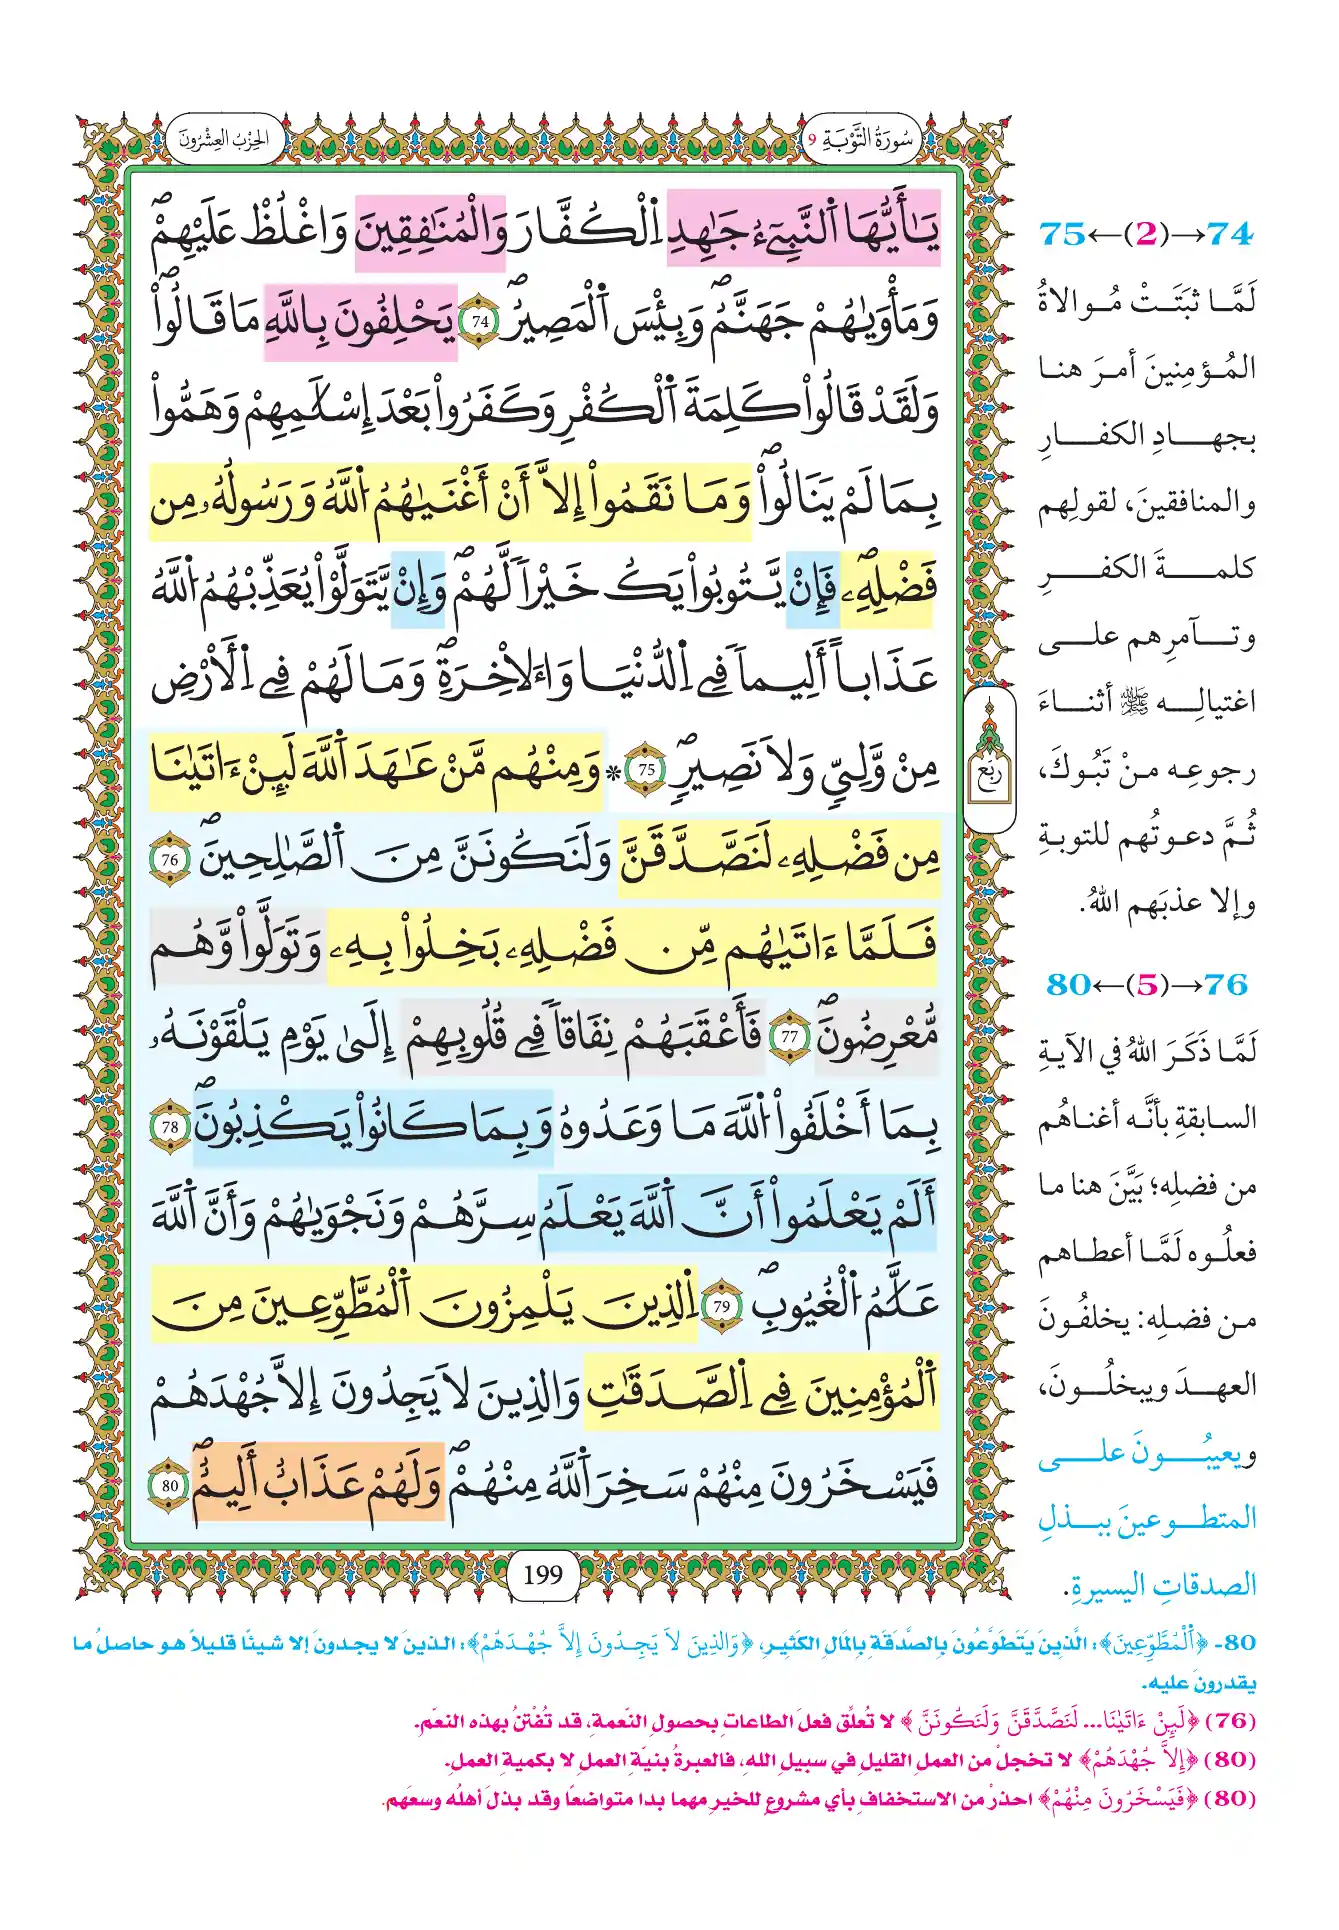 سُورَةُ التَّوْبَةِ 9
الحِزْبُ العِشْرُونَ
يَٰأَيُّهَا اَ۬لنَّبِيٓءُ جَٰهِدِ اِ۬لْكُفَّارَ وَالْمُنَٰفِقِينَ وَاغْلُظْ عَلَيْهِمْۖ
وَمَأْوَيٰهُمْ جَهَنَّمُۖ وَبِئْسَ اَ۬لْمَصِيرُۖ 74 يَحْلِفُونَ بِاللَّهِ مَا قَالُواْۖ
وَلَقَدْ قَالُواْ كَلِمَةَ اَ۬لْكُفْرِ وَكَفَرُواْ بَعْدَ إِسْلَٰمِهِمْ وَهَمُّواْ
بِمَا لَمْ يَنَالُواْۖ وَمَا نَقَمُواْ إِلاَّ أَنْ أَغْنَيٰهُمُ اُ۬للَّهُ وَرَسُولُهُۥ مِن
فَضْلِهِۦۖ فَإِنْ يَّتُوبُواْ يَكُ خَيْراٗ لَّهُمْۖ وَإِنْ يَّتَوَلَّوْاْ يُعَذِّبْهُمُ اُ۬للَّهُ
عَذَاباً أَلِيماٗ فِے اِ۬لدُّنْيَا وَالَاخِرَةِۖ وَمَا لَهُمْ فِے اِ۬لَارْضِ
مِنْ وَّلِيّٖ وَلاَ نَصِيرٖۖ 75 * وَمِنْهُم مَّنْ عَٰهَدَ اَ۬للَّهَ لَئِنْ ءَاتَيٰنَا
مِن فَضْلِهِۦ لَنَصَّدَّقَنَّ وَلَنَكُونَنَّ مِنَ اَ۬لصَّٰلِحِينَۖ 76
فَلَمَّا ءَاتَيٰهُم مِّن فَضْلِهِۦ بَخِلُواْ بِهِۦ وَتَوَلَّواْ وَّهُم
مُّعْرِضُونَۖ 77 فَأَعْقَبَهُمْ نِفَاقاٗ فِے قُلُوبِهِمْ إِلَىٰ يَوْمِ يَلْقَوْنَهُۥ
بِمَا أَخْلَفُواْ اُ۬للَّهَ مَا وَعَدُوهُ وَبِمَا كَانُواْ يَكْذِبُونَۖ 78
أَلَمْ يَعْلَمُواْ أَنَّ اَ۬للَّهَ يَعْلَمُ سِرَّهُمْ وَنَجْوَيٰهُمْ وَأَنَّ اَ۬للَّهَ
عَلَّٰمُ اُ۬لْغُيُوبِۖ 79 اِ۬لذِينَ يَلْمِزُونَ اَ۬لْمُطَّوِّعِينَ مِنَ
اَ۬لْمُؤْمِنِينَ فِے اِ۬لصَّدَقَٰتِ وَالذِينَ لاَ يَجِدُونَ إِلاَّ جُهْدَهُمْ
فَيَسْخَرُونَ مِنْهُمْ سَخِرَ اَ۬للَّهُ مِنْهُمْۖ وَلَهُمْ عَذَابٌ أَلِيمٌۖ 80
ربع
199
74→(2)←75
لَمَّا ثبَتَتْ مُوالاةُ
المُؤمِنينَ أمرَ هنا
بجهادِ الكفارِ
والمنافقينَ، لقولِهم
كلمةَ الكفرِ
وتآمرِهم على
اغتيالِه ﷺ أثناءَ
رجوعِه منْ تَبُوكَ،
ثُمَّ دعوتُهم للتوبةِ
وإلا عذبَهم اللهُ.
76→(5)←80
لَمَّا ذَكَرَ اللهُ في الآيةِ
السابقةِ بأنَّه أغناهُم
من فضلِه؛ بَيَّنَ هنا ما
فعلُوه لَمَّا أعطاهم
من فضلِه: يخلفُونَ
العهدَ ويبخلُونَ،
ويعيبُونَ على
المتطوعينَ ببذلِ
الصدقاتِ اليسيرةِ.
80- ﴿اَ۬لْمُطَّوِّعِينَ﴾: الَّذِينَ يَتَطَوَّعُونَ بِالصَّدَقَةِ بِالمَالِ الكَثِيرِ، ﴿وَالذِينَ لاَ يَجِدُونَ إِلاَّ جُهْدَهُمْ﴾: الذينَ لا يجدونَ إلا شيئًا قليلاً هو حاصلُ ما
يقدرونَ عليه.
(76) ﴿لَئِنْ ءَاتَيٰنَا... لَنَصَّدَّقَنَّ وَلَنَكُونَنَّ﴾ لا تُعلِّق فعلَ الطاعاتِ بحصولِ النِّعمةِ، قد تُفْتنُ بهذه النعَم.
(80) ﴿إِلاَّ جُهْدَهُمْ﴾ لا تخجلْ من العملِ القليلِ في سبيلِ اللهِ، فالعبرةُ بنيّةِ العملِ لا بكميةِ العملِ.
(80) ﴿فَيَسْخَرُونَ مِنْهُمْ﴾ احذرْ من الاستخفافِ بأي مشروعٍ للخيرِ مهما بدا متواضعًا وقد بذلَ أهلُه وسعَهم.